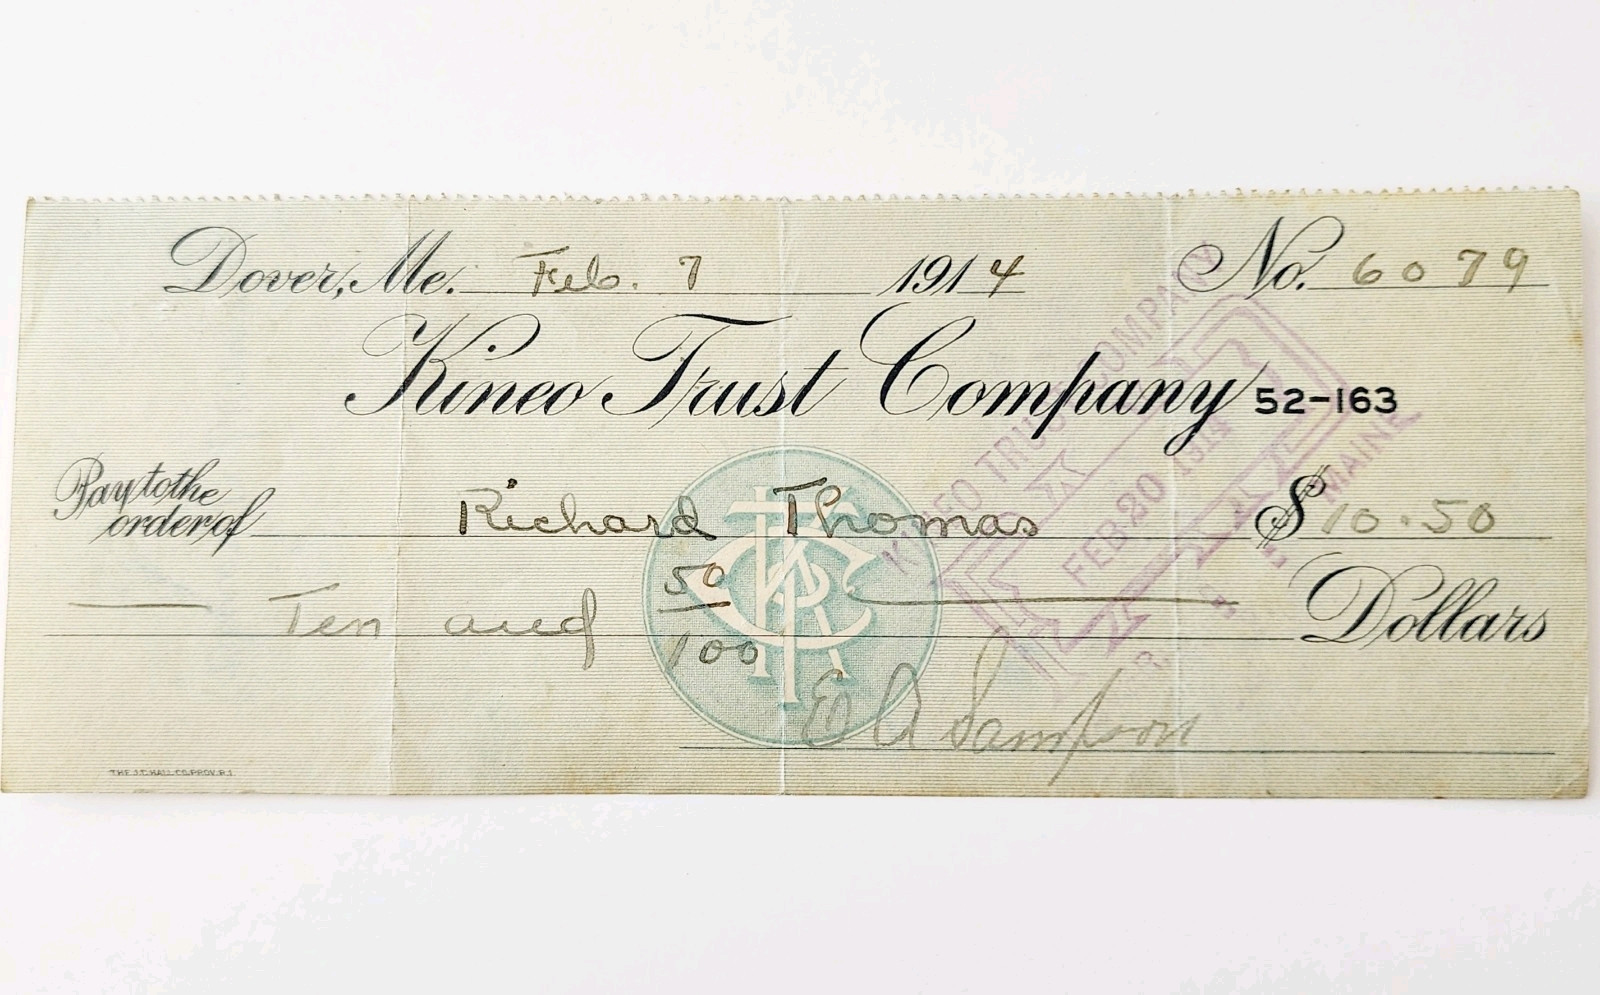 Dover, Me. Feb. 7 1914 No. 6079
Kineo Trust Company 52-163
Pay to the
order of Richard Thomas $10.50
Ten and 50/100 Dollars
E A Sampson
THE J.C. HALL CO. PROV. R.I.
KINEO TRUST COMPANY
FEB 20 1914
MAINE
KTC